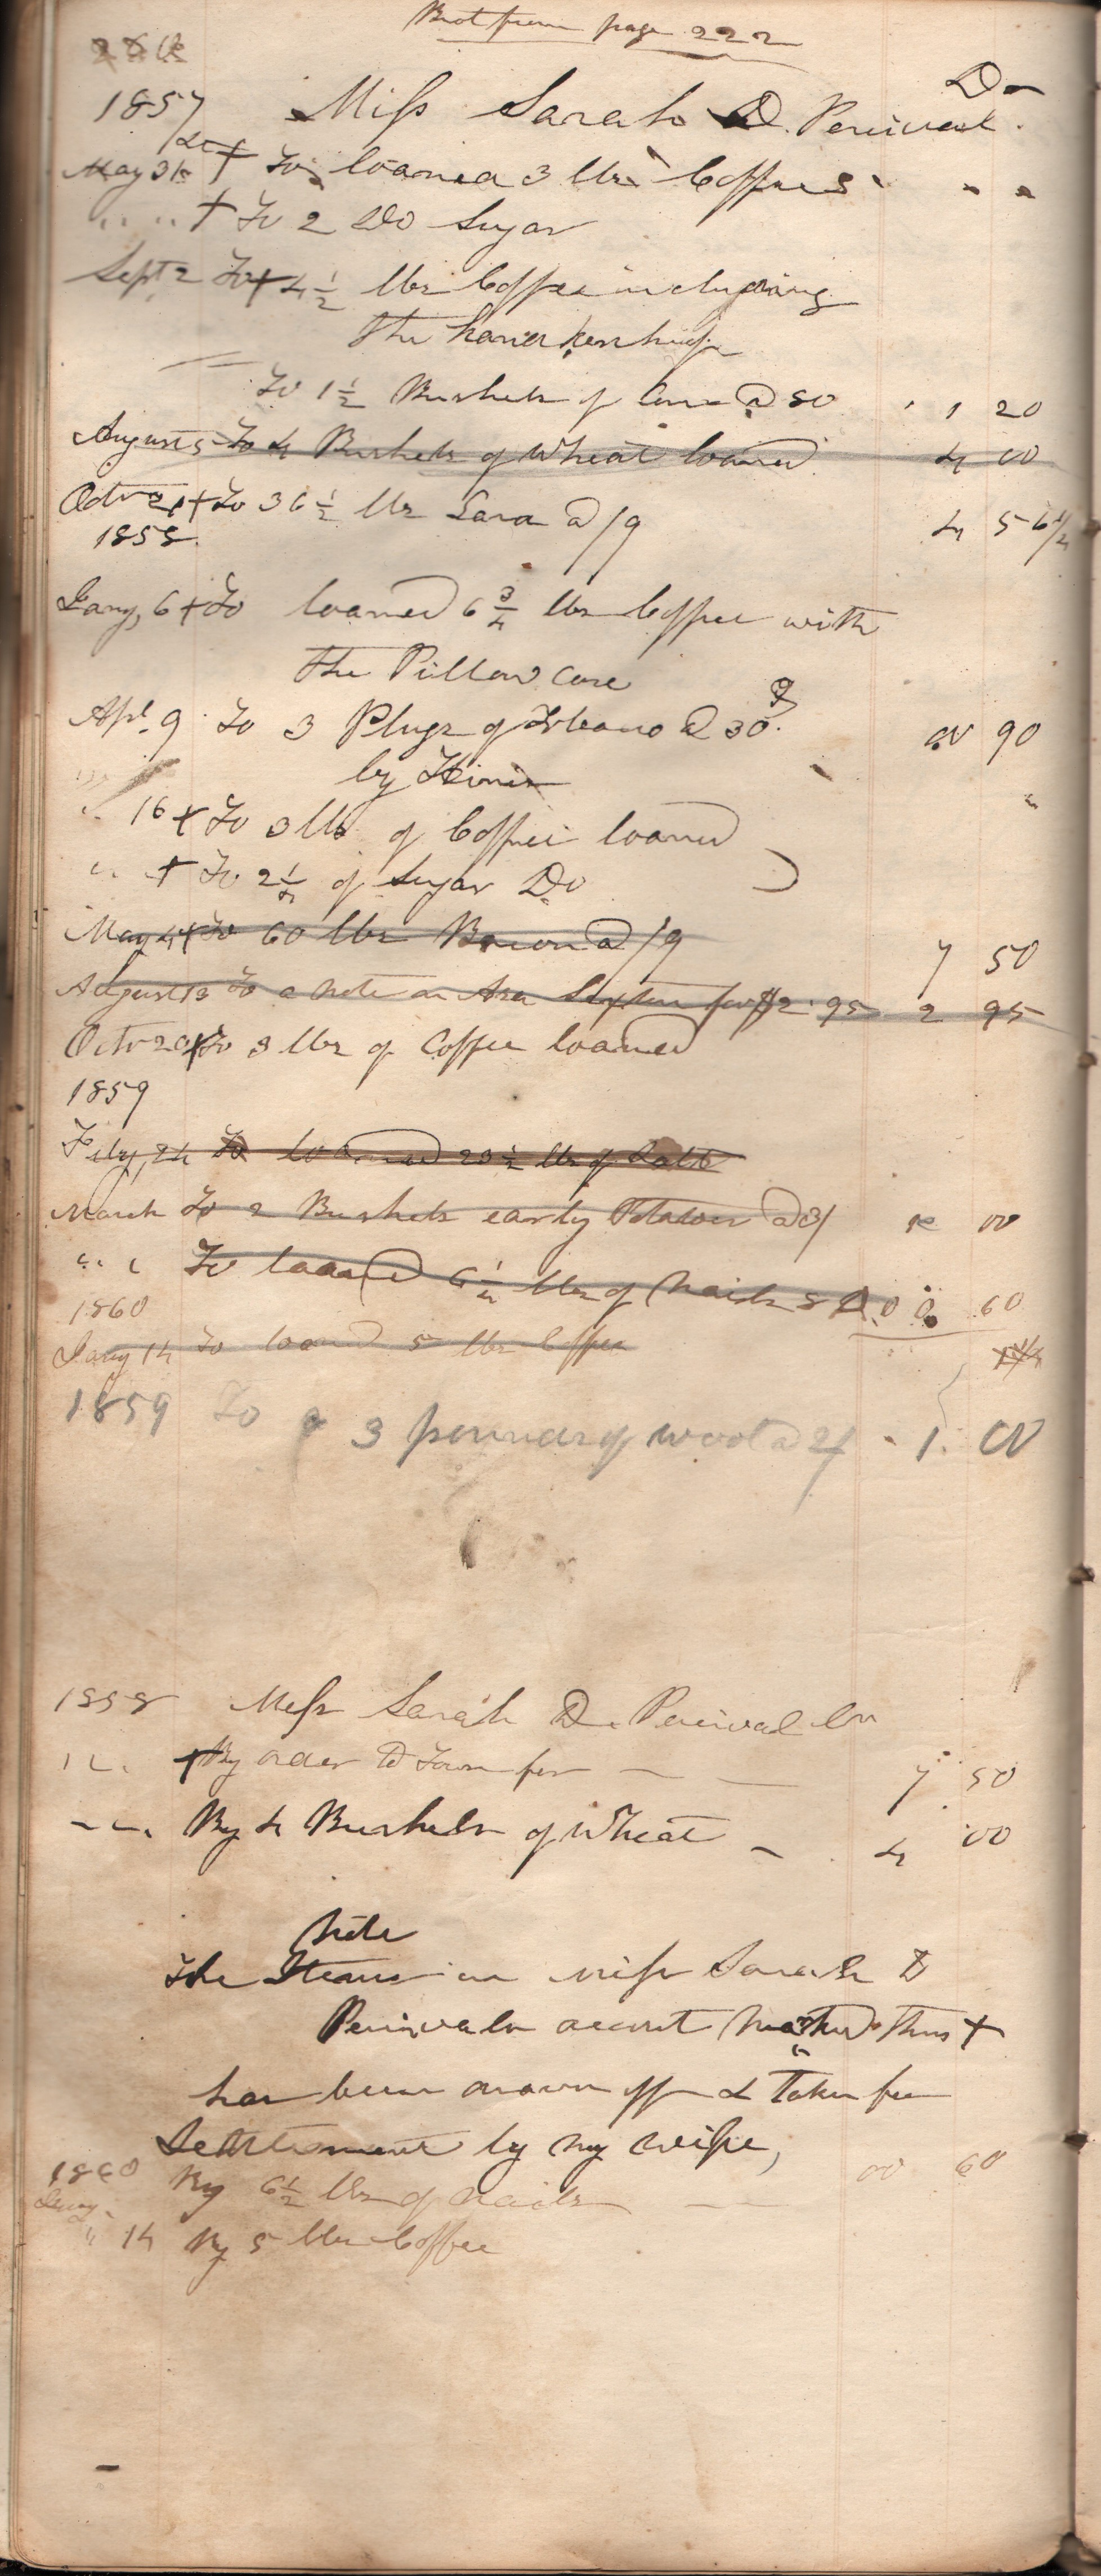 Brot from page 222
Dr
1857 Miss Sarah D. Percival
May 31st + To loaned 3 lbs Coffee
" " + To 2 Do Sugar
Sept 2 To + 4 1/2 lbs Coffee including
the handkerchief
To 1 1/2 Bushels of Corn @ 80 1 20
August 5 To 4 Bushels of Wheat loaned 4 00
Octr 21 + To 36 1/2 lbs Lard @ /9 4 56 1/4
1858
Jany, 6 + To loaned 6 3/4 lbs Coffee with
the Pillow case
Apl 9 To 3 Plugs of Tobacco @ 30 00 90
by
" 16 + To 3 lbs of Coffee loaned
" + To 2 1/2 of Sugar Do
May 4 + To 60 lbs Bacon @ /9 7 50
August 13 To a note on Asa for $2.95 2 95
Octr 20 + To 3 lbs of Coffee loaned
1859
Feby, 24 To loaned 23 1/2 lbs of Salt
March To 2 Bushels early Potatoes @ 3/ 00
" " To loaned 6 1/2 lbs of Nails 8 D 0 0 60
1860
Jany 14 To loaned 5 lbs Coffee
1859 To 3 pounds of wool @ 2/ 1.00
1858 Miss Sarah D. Percival Cr
" + By order to Town for 7 50
" By 4 Bushels of Wheat 4 00
Note
The Items in miss Sarah D
Percivals account marked thus +
has been drawn off & taken for
Settlement by my wife,
1860 By 6 1/2 lbs of nails 00 60
Jany
" 14 By 5 lbs Coffee